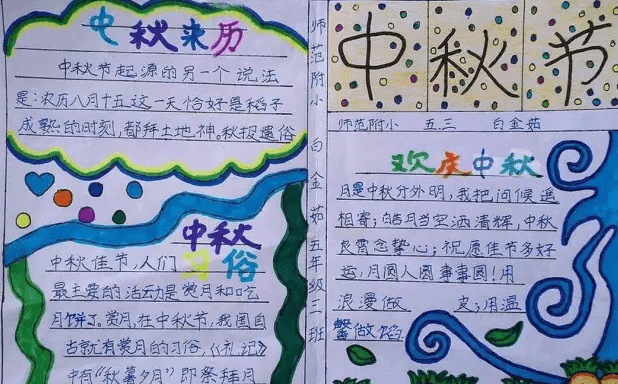 中秋来历
中秋节起源的另一个说法
是:农历八月十五这一天恰好是稻子
成熟的时刻,都拜土地神。秋报遗俗
中秋
习俗
中秋佳节,人们
最主要的活动是赏月和吃
月饼了。赏月,在中秋节,我国自
古就有赏月的习俗,《礼记》
中有“秋暮夕月”即祭拜月
师范附小 白金茹 五年级三班
中秋节
师范附小 五.三 白金茹
欢庆中秋
月是中秋分外明,我把问候遥
相寄;皓月当空洒清辉,中秋
良宵念挚心;祝愿佳节多好
运,月圆人圆事事圆!用
浪漫做 皮;用温
馨做馅